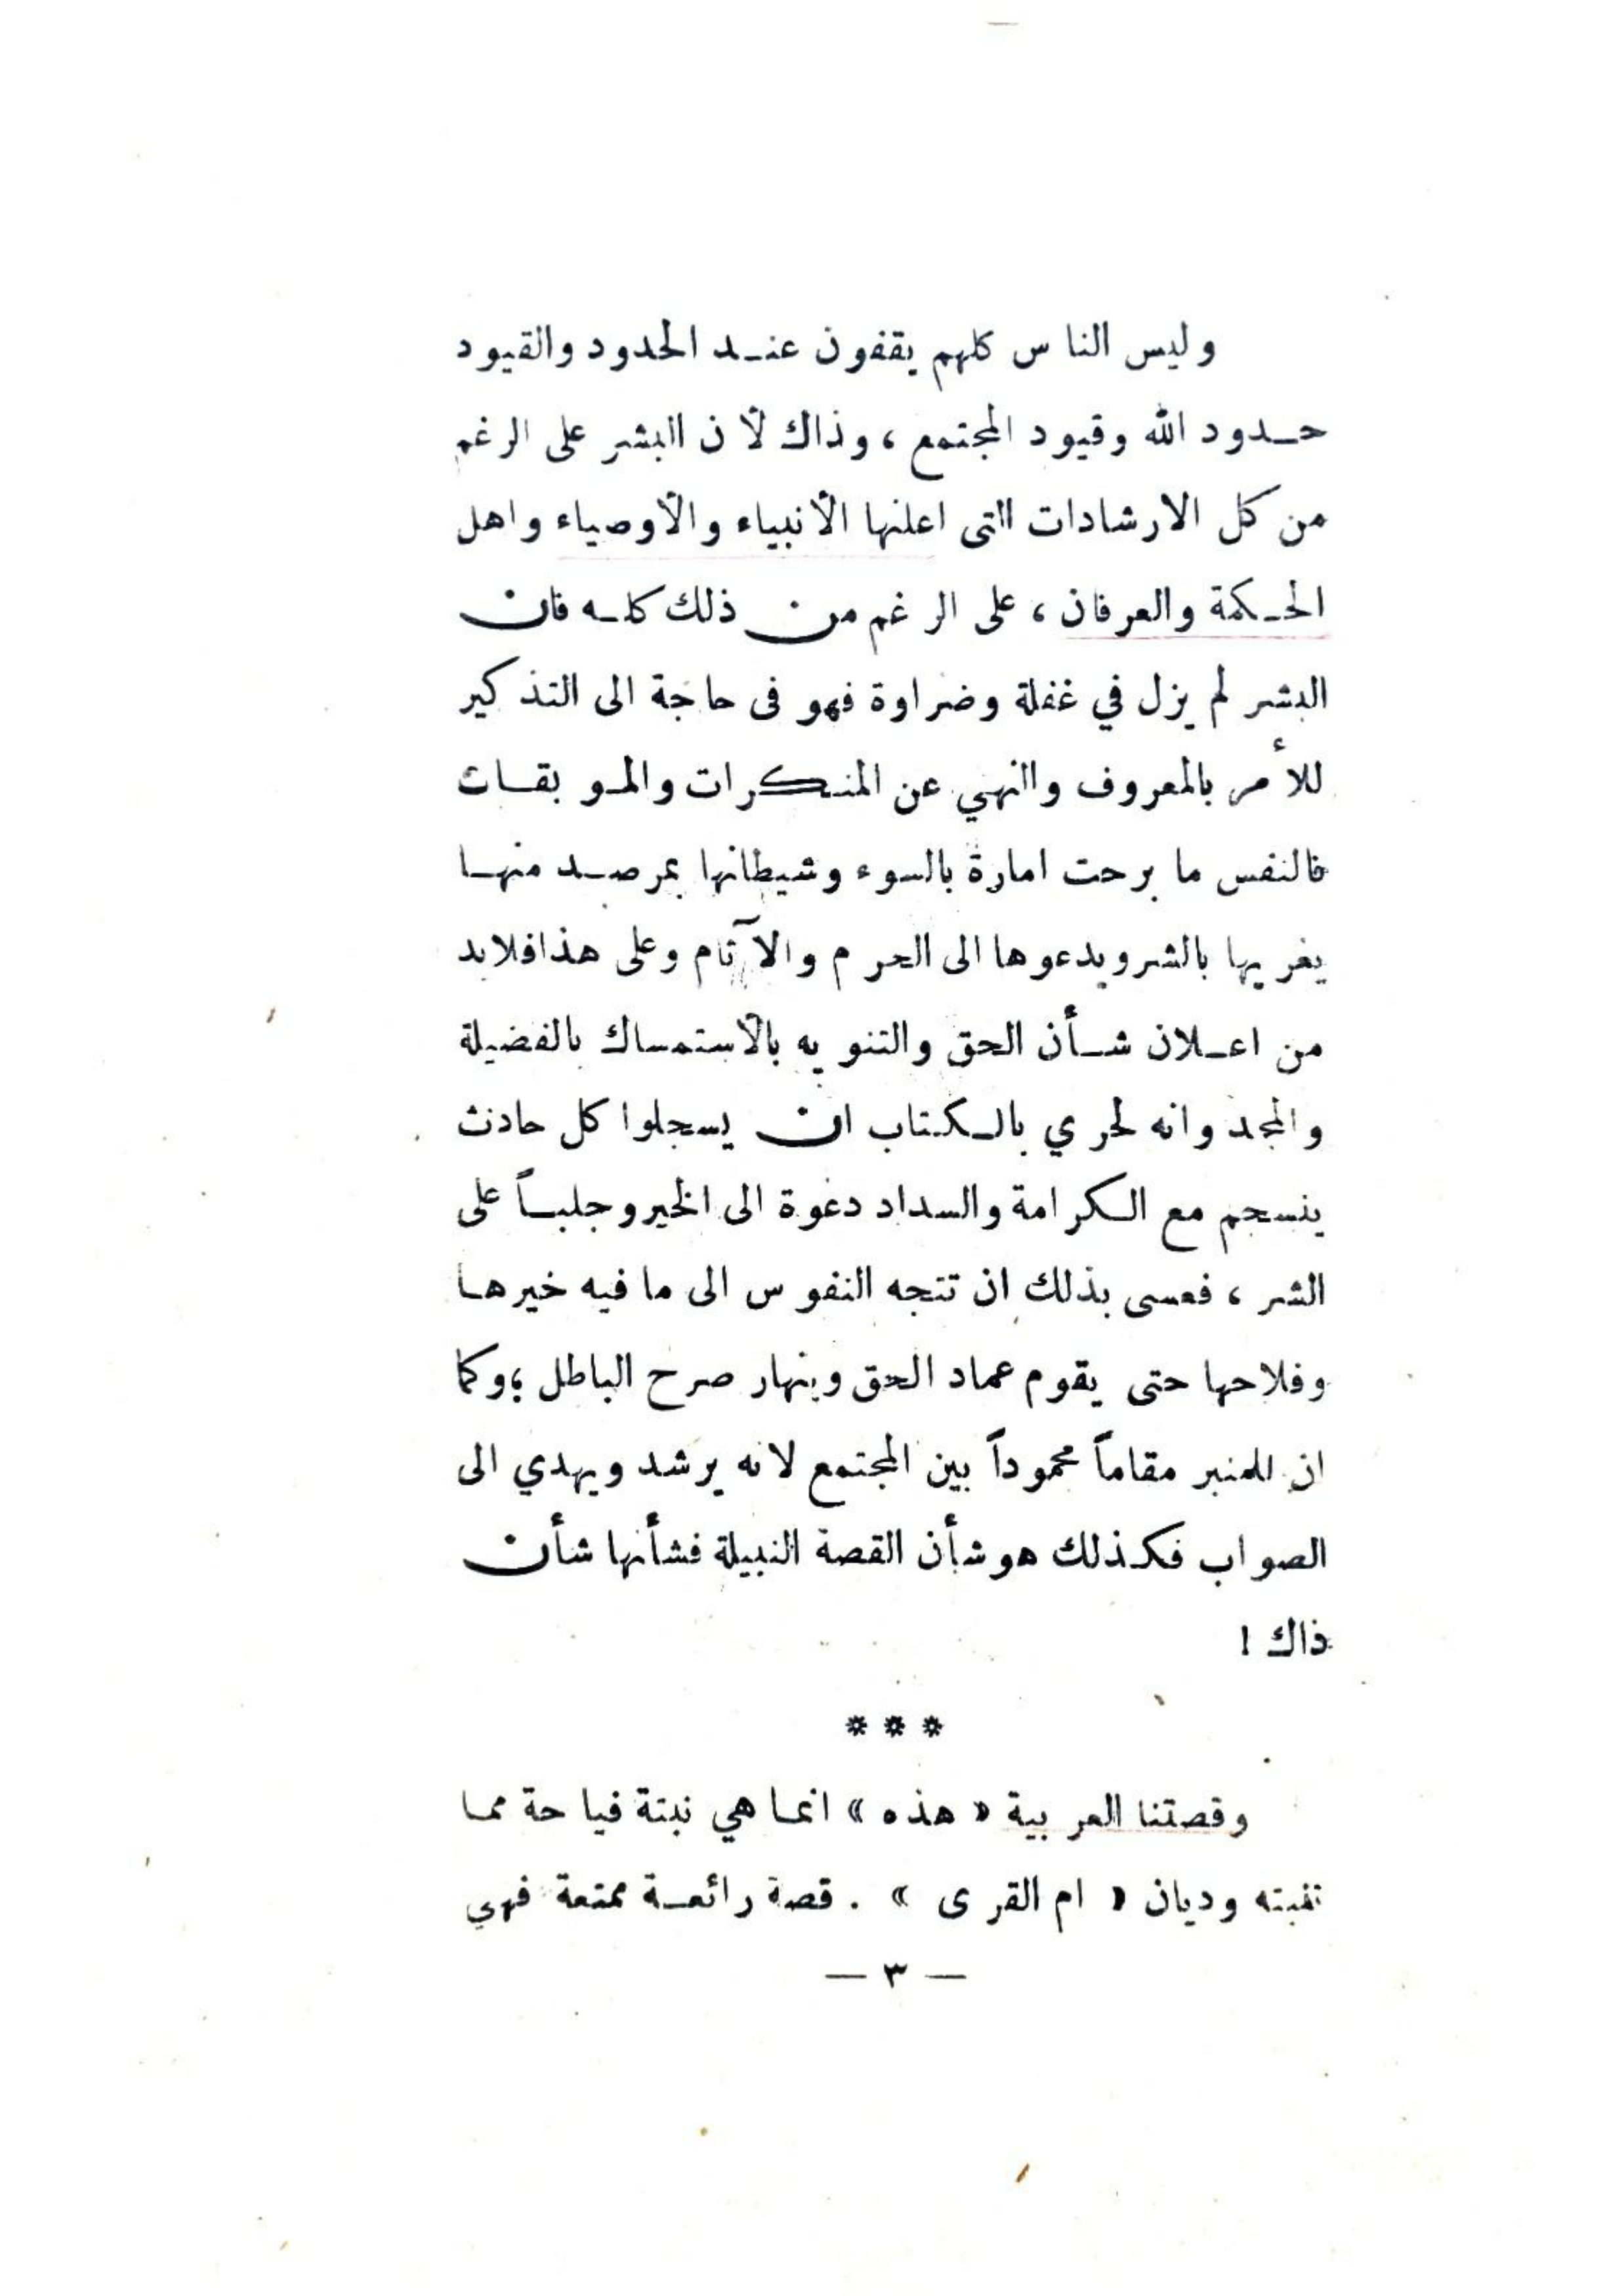 وليس الناس كلهم يقفون عند الحدود والقيود
حدود الله وقيود المجتمع ، وذاك لأن البشر على الرغم
من كل الارشادات التى اعلنها الأنبياء والأوصياء واهل
الحكمة والعرفان ، على الرغم من ذلك كله فان
البشر لم يزل في غفلة وضراوة فهو فى حاجة الى التذكير
للأمر بالمعروف والنهي عن المنكرات والموبقات
فالنفس ما برحت امارة بالسوء وشيطانها بمرصد منها
يغريها بالشر ويدعوها الى الحرم والآثام وعلى هذا فلابد
من اعلان شأن الحق والتنويه بالأستمساك بالفضيلة
والمجد وانه لحري بالكتاب ان يسجلوا كل حادث
ينسجم مع الكرامة والسداد دعوة الى الخير وجلباً على
الشر ، فعسى بذلك ان تتجه النفوس الى ما فيه خيرها
وفلاحها حتى يقوم عماد الحق وينهار صرح الباطل ؛ وكما
ان للمنبر مقاماً محموداً بين المجتمع لانه يرشد ويهدي الى
الصواب فكذلك هو شأن القصة النبيلة فشأنها شأن
ذاك !
* * *
وقصتنا العربية « هذه » انما هي نبتة فياحة مما
تنبته وديان « ام القرى » . قصة رائعة ممتعة فهي
— ٣ —